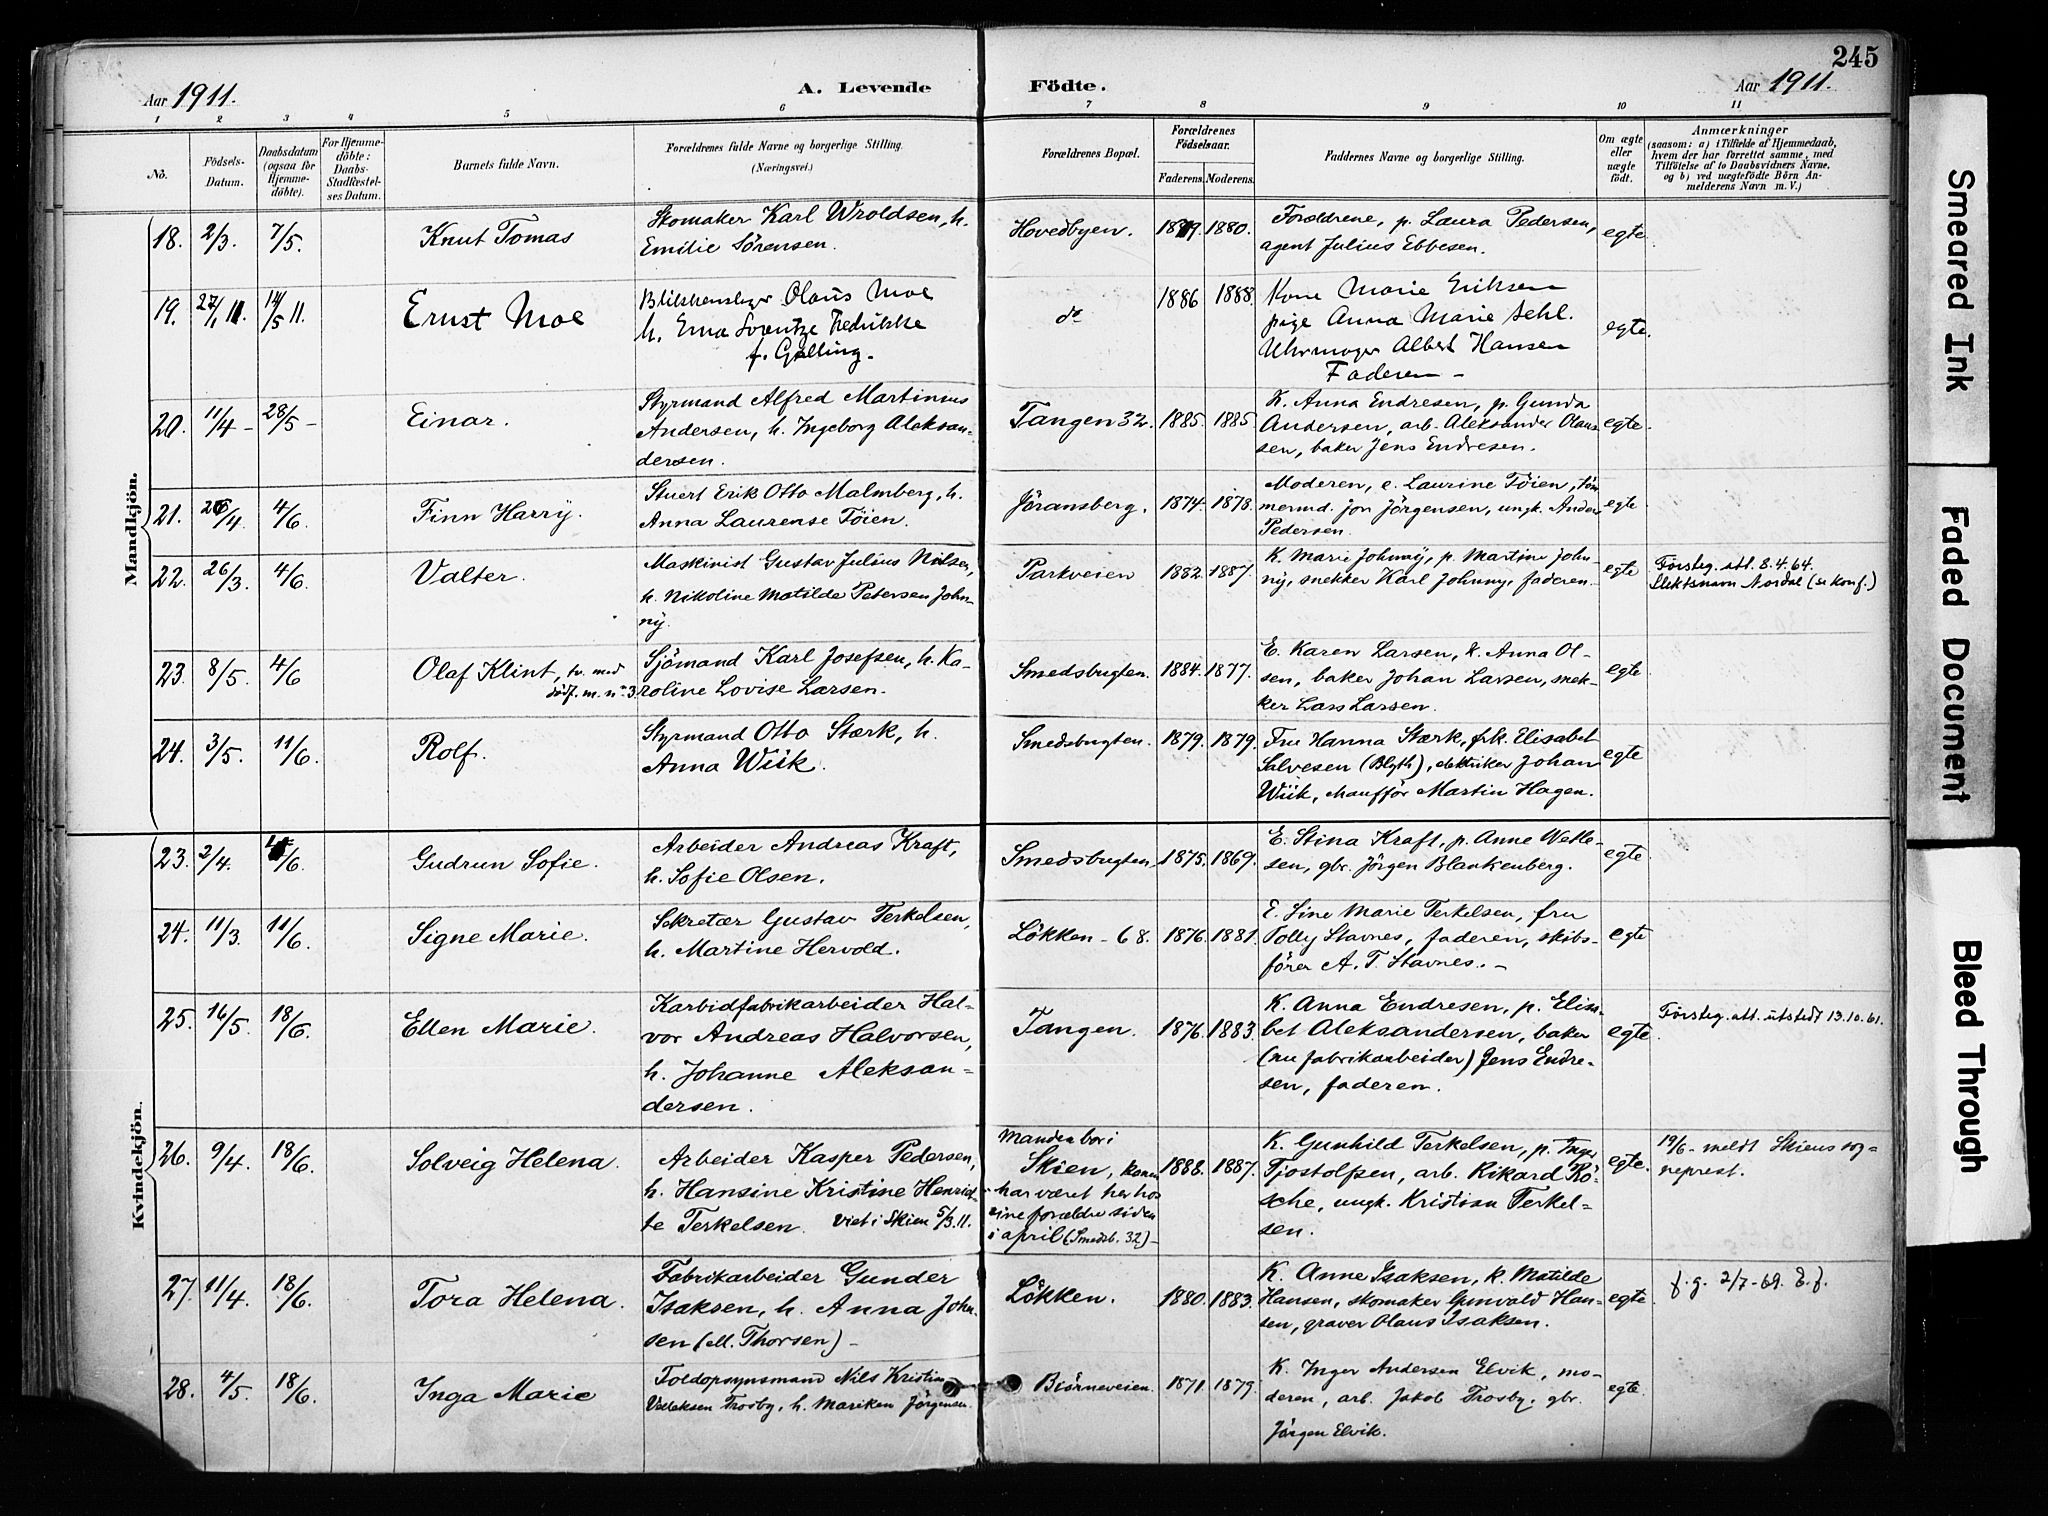 245
Aar 1911.
A. Levende Födte.
Aar 1911.
1 2 3 4 5 6 7 8 9 10 11
No.
Födsels-Datum.
Daabsdatum (ogsaa for Hjemme-döbte).
For Hjemme-döbte: Daabs-Stadfæstel-ses Datum.
Barnets fulde Navn.
Forældrenes fulde Navne og borgerlige Stilling.
(Næringsvei.)
Forældrenes Bopæl.
Forældrenes Födselsaar.
Faderens. Moderens.
Faddernes Navne og borgerlige Stilling.
Om ægte eller uægte födt.
Anmærkninger
(saasom: a) i Tilfælde af Hjemmedaab,
hvem der har forrettet samme, med
Tilföielse af to Daabsvidners Navne,
og b) ved uægtefödte Börn An-
melderens Navn m. V.)
Mandkjön.
18. 2/3. 7/5. Knut Tomas
Skomaker Karl Wroldsen, h.
Emilie Sørensen.
Hovedbyen. 1879. 1880.
Forældrene, p. Laura Pedersen,
agent Julius Ebbesen.
egte
19. 27/1 11. 14/5 11. Ernst Moe
Blikkenslager Olaus Moe
h. Erna Lorentze Fredrikke
f. Gelling.
do 1886 1888.
Kone Marie Eriksen
pige Anna Marie Sehl.
Uhrmager Albert Hansen
Faderen -
egte.
20. 11/4 - 28/5 - Einar.
Styrmand Alfred Martinius
Andersen, h. Ingeborg Aleksan-
dersen.
Tangen 32. 1885. 1885
K. Anna Endresen, p. Gunda
Andersen, arb. Aleksander Olaus-
sen, baker Jens Endresen.
egte.
21. 26/4. 4/6. Finn Harry.
Stuert Erik Otto Malmberg, h.
Anna Laurense Töien.
Jöransberg. 1874. 1878.
Moderen, e. Laurine Töien, töm
mermd. Jon Jörgensen, ungk. Anders
Pedersen.
egte
22. 26/3. 4/6. Valter.
Maskinist Gustav Julius Nilsen,
h. Nikoline Matilde Petersen John-
ny.
Parkveien 1882. 1887.
K. Marie Johnny, p. Martine John-
ny, snekker Karl Johnny, faderen.
egte
Försteg. att. 8.4.64.
Slektsnavn Nordal (se konf.)
23. 8/5. 4/6 Olaf Klint, tv. med
dödf. m. no 3.
Sjömand Karl Josefsen, h. Ka-
roline Lovise Larsen.
Smedsbugten. 1884. 1877.
E. Karen Larsen, k. Anna Ol-
sen, baker Johan Larsen, snek-
ker Lars Larsen.
egte
24. 3/5. 11/6. Rolf.
Styrmand Otto Stærk, h.
Anna Wiik.
Smedsbugten. 1879. 1879.
Fru Hanna Stærk, frk. Elisabet
Salvesen (Blyth), elektriker Johan
Wiik, chaufför Martin Hagen.
egte
Kvindekjön.
23. 2/4. /6. Gudrun Sofie.
Arbeider Andreas Kraft,
h. Sofie Olsen.
Smedsbugten, 1875. 1869.
E. Stina Kraft, p. Anne Wetle-
sen, gbr. Jörgen Blankenberg.
egte
24. 11/3. 11/6. Signe Marie.
Sekretær Gustav Terkelsen,
h. Martine Hervold.
Lökken - 68. 1876. 1881.
E. Sine Marie Terkelsen, fru
Tolly Stavnes, faderen, skibs-
förer A. T. Stavnes. -
egte
25. 16/5. 18/6. Ellen Marie.
Karbidfabrikarbeider Hal-
vor Andreas Halvorsen,
h. Johanne Aleksan-
dersen.
Tangen. 1876. 1883.
K. Anna Endresen, p. Elisa-
bet Aleksandersen, baker
(nu fabrikarbeider) Jens Endre-
sen, faderen.
egte.
Försteg. att. utstedt 13.10.61.
26. 9/4. 18/6. Solveig Helena.
Arbeider Kasper Pedersen,
h. Hansine Kristine Henriet-
te Terkelsen. Viet i Skien 5/3. 11.
Manden bor i
Skien, konen
har været her hos
sine forældre siden
i april (Smedsb. 32) -
1888. 1887.
K. Gunhild Terkelsen, p. Inger
Tjostolfsen, arb. Rikard Rö-
sche, ungk. Kristian Terkel-
sen.
egte.
19/6 - meldt Skiens sog-
neprest.
27. 11/4. 18/6. Tora Helena.
Fabrikarbeider Gunder
Isaksen, h. Anna John-
sen (ell. Thorsen) -
Lökken. 1880. 1883.
K. Anne Isaksen, k. Matilde
Hansen, skomaker Gunvald Han-
sen, graver Olaus Isaksen.
egte
f.g. 2/7-69. E.f.
28. 4/5. 18/6. Inga Marie
Toldopsynsmand Nils Kristian
Trosby, h. Mariken Jörgensen.
Biörneveien. 1871. 1879.
K. Inger Andersen Elvik, mo-
deren, arb. Jakob Trosby, gbr.
Jörgen Elvik.
egte.
Smeared Ink
Faded Document
Bleed Through